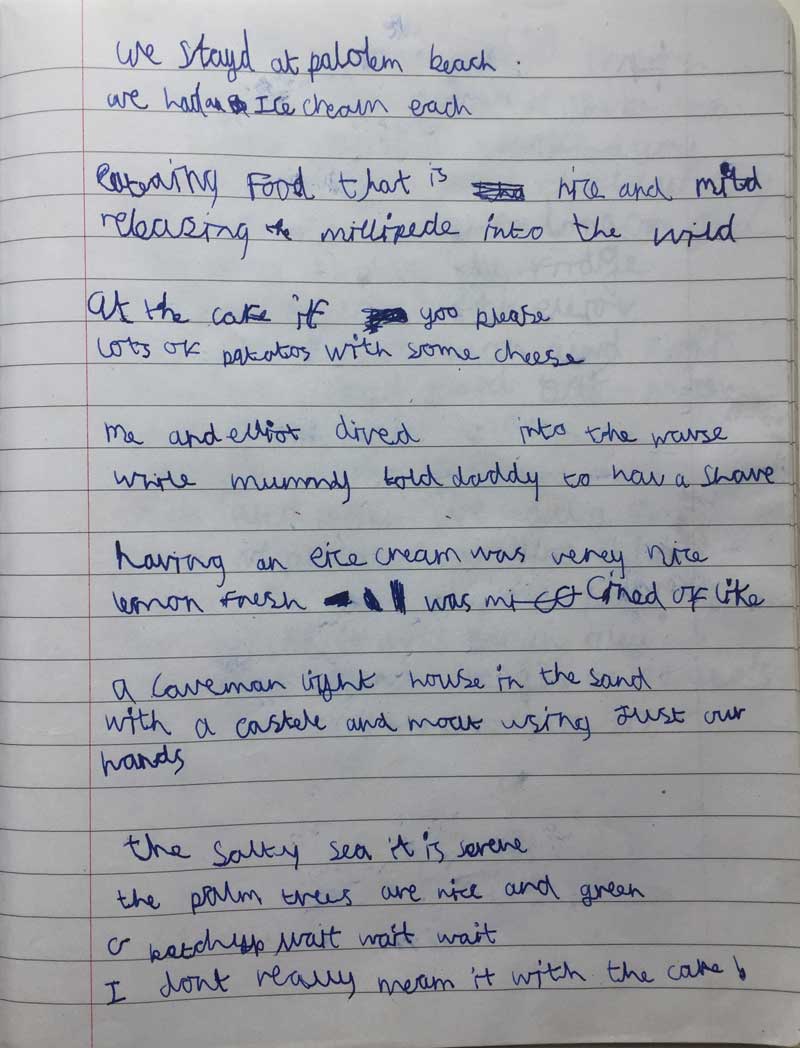 we stayd at palolem beach.
we had an Ice cream each
eateaing food that is nice and mild
releasing the millipede into the wild
at the cafe if yoo please
lots of patatos with some cheese
me and elliot dived into the wause
while mummy told daddy to hav a shave
having an eice cream was verey nice
lemon fresh was mi Cined of like
a Caveman light house in the sand
with a castele and moat using Just our
hands
the salty sea it is serene
the palm trees are nice and green
ketchup wait wait wait
I dont really mearn it with the cake!